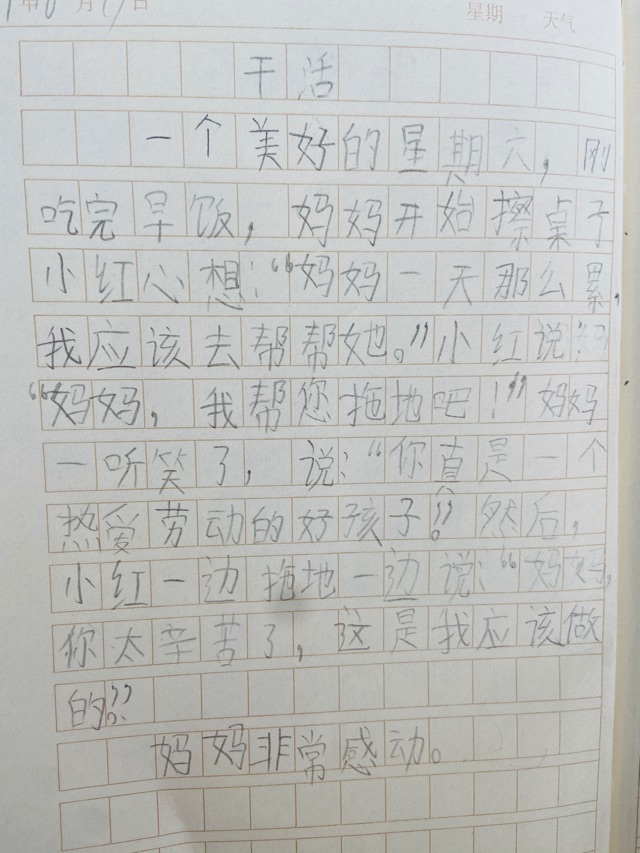 年 月 日 星期 天气
干活
一个美好的星期六，刚
吃完早饭，妈妈开始擦桌子
小红心想：“妈妈一天那么累，
我应该去帮帮她。”小红说：
“妈妈，我帮您拖地吧！”妈妈
一听笑了，说：“你真是一个
热爱劳动的好孩子。”然后，
小红一边拖地一边说：“妈妈，
你太辛苦了，这是我应该做
的。”
妈妈非常感动。